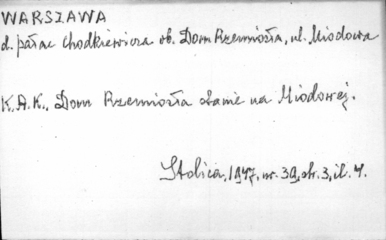 WARSZAWA
d. pałac Chodkiewicza ob. Dom Rzemiosła, ul. Miodowa
K.A.K., Dom Rzemiosła stanie na Miodowej.
Stolica, 1947, nr. 39, str. 3, il. 4.